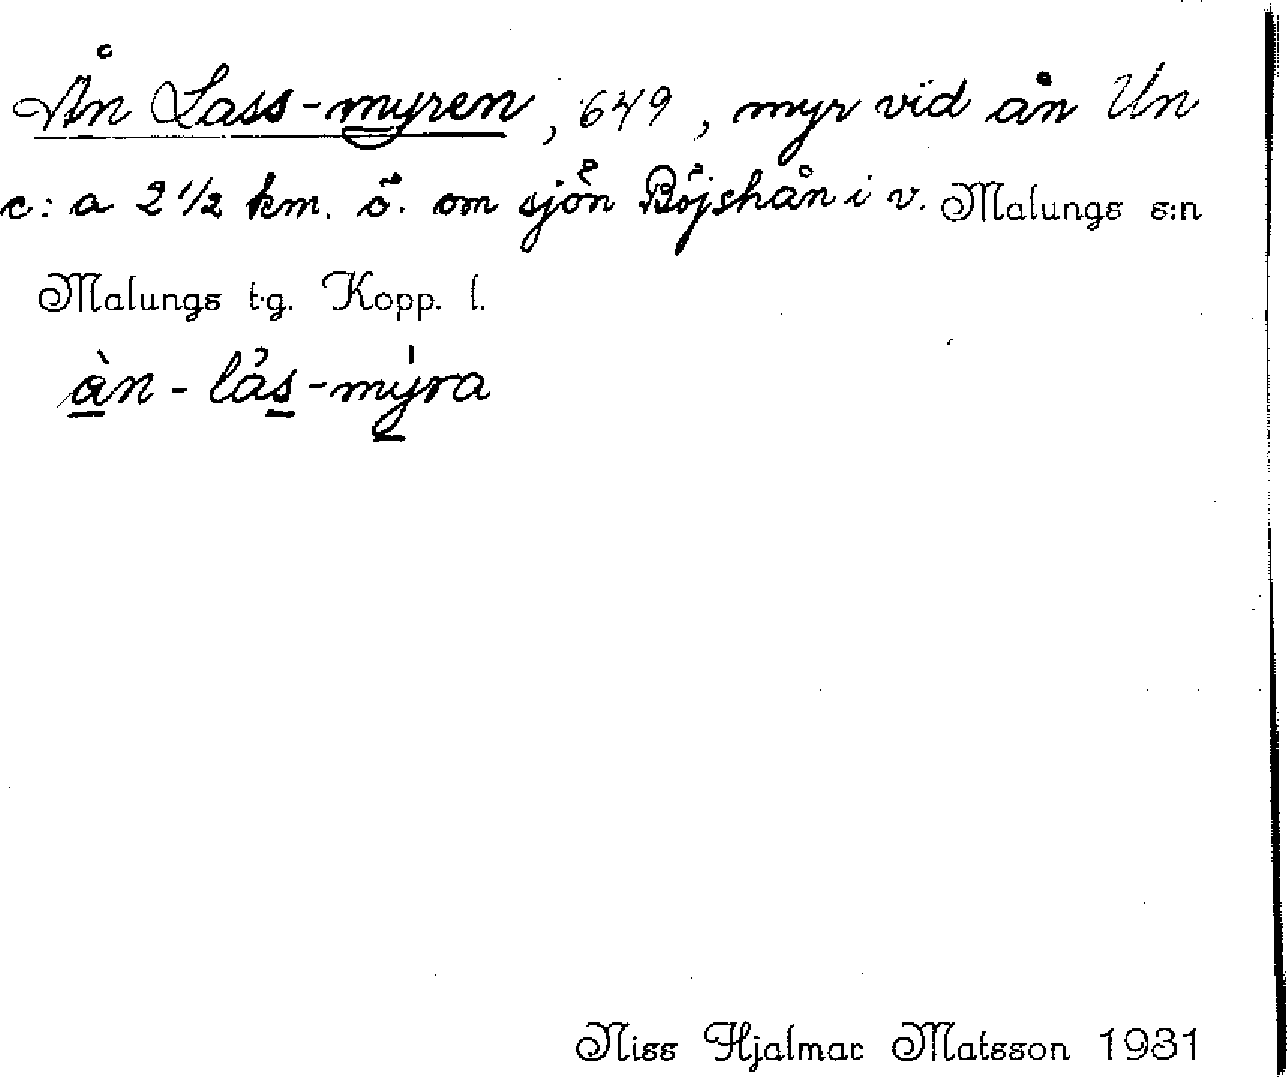 Ån Lass-myren, 649, myr vid ån Un
c:a 2 1/2 km. ö. om sjön Böjshån i v. Malungs s:n
Malungs t.g. Kopp. l.
àn-lás-mýra
Niss Hjalmar Matsson 1931